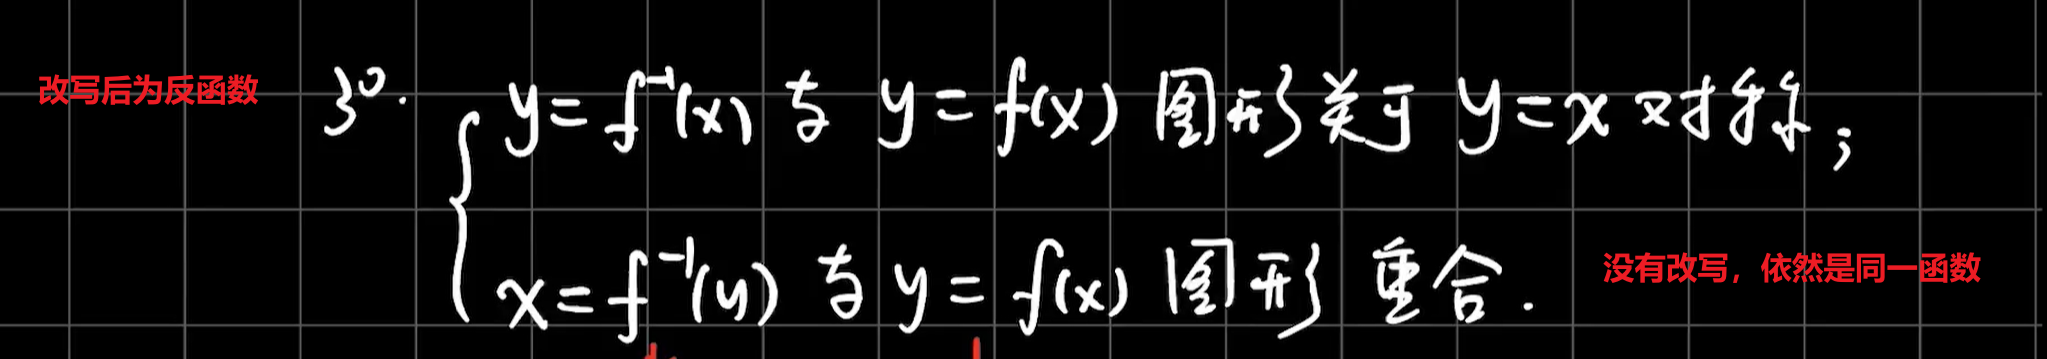 改写后为反函数
3⁰. y=f⁻¹(x) 与 y=f(x) 图形关于 y=x 对称;
x=f⁻¹(y) 与 y=f(x) 图形 重合.
没有改写，依然是同一函数